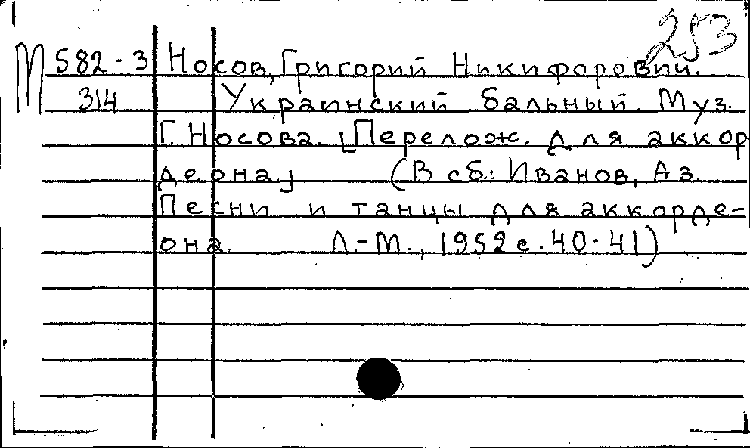 253
М 582-3 Носов, Григорий Никифорович.
314 Украинский бальный. Муз.
Г. Носова. [Перелож. для аккор
деона] (В сб: Иванов, Аз.
Песни и танцы для аккорде-
она. Л.-М., 1952 с. 40-41)